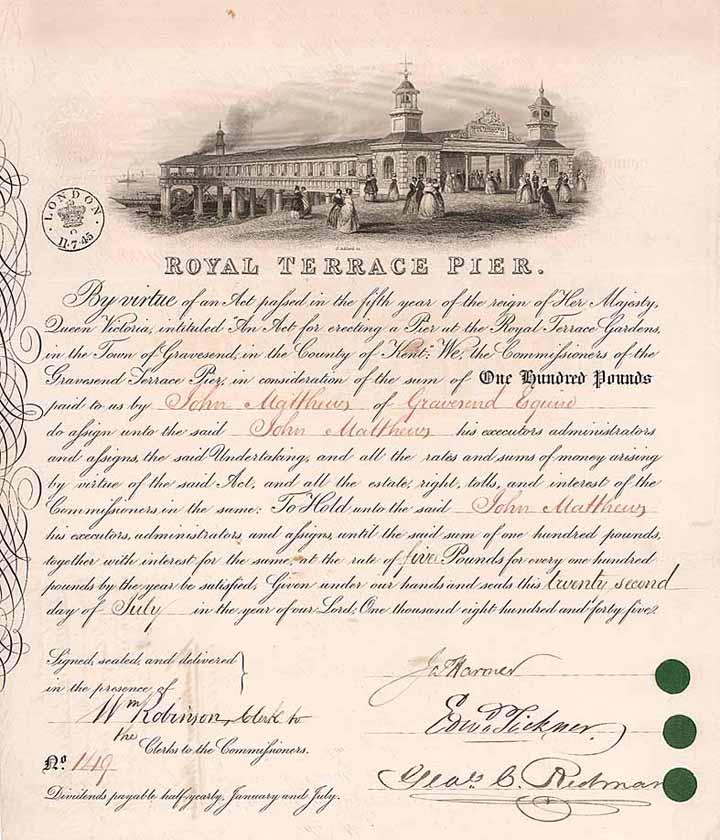 LONDON
11·7·45
ROYAL TERRACE PIER.
By virtue of an Act passed in the fifth year of the reign of Her Majesty,
Queen Victoria, intituled "An Act for erecting a Pier at the Royal Terrace Gardens,
in the Town of Gravesend, in the County of Kent," We, the Commissioners of the
Gravesend Terrace Pier, in consideration of the sum of One Hundred Pounds
paid to us by John Matthews of Gravesend Esquire
do assign unto the said John Matthews his executors administrators
and assigns, the said Undertaking, and all the rates and sums of money arising
by virtue of the said Act, and all the estate, right, tolls, and interest of the
Commissioners in the same: To Hold unto the said John Matthews
his executors, administrators, and assigns, until the said sum of one hundred pounds,
together with interest for the same, at the rate of five Pounds for every one hundred
pounds by the year be satisfied, Given under our hands and seals this twenty second
day of July in the year of our Lord, One thousand eight hundred and forty five
Signed, sealed, and delivered
in the presence of
Wm Robinson, Clerk to
the Clerks to the Commissioners.
No. 149
Dividends payable half yearly, January and July.
Edwd Tickner.
C. Redman